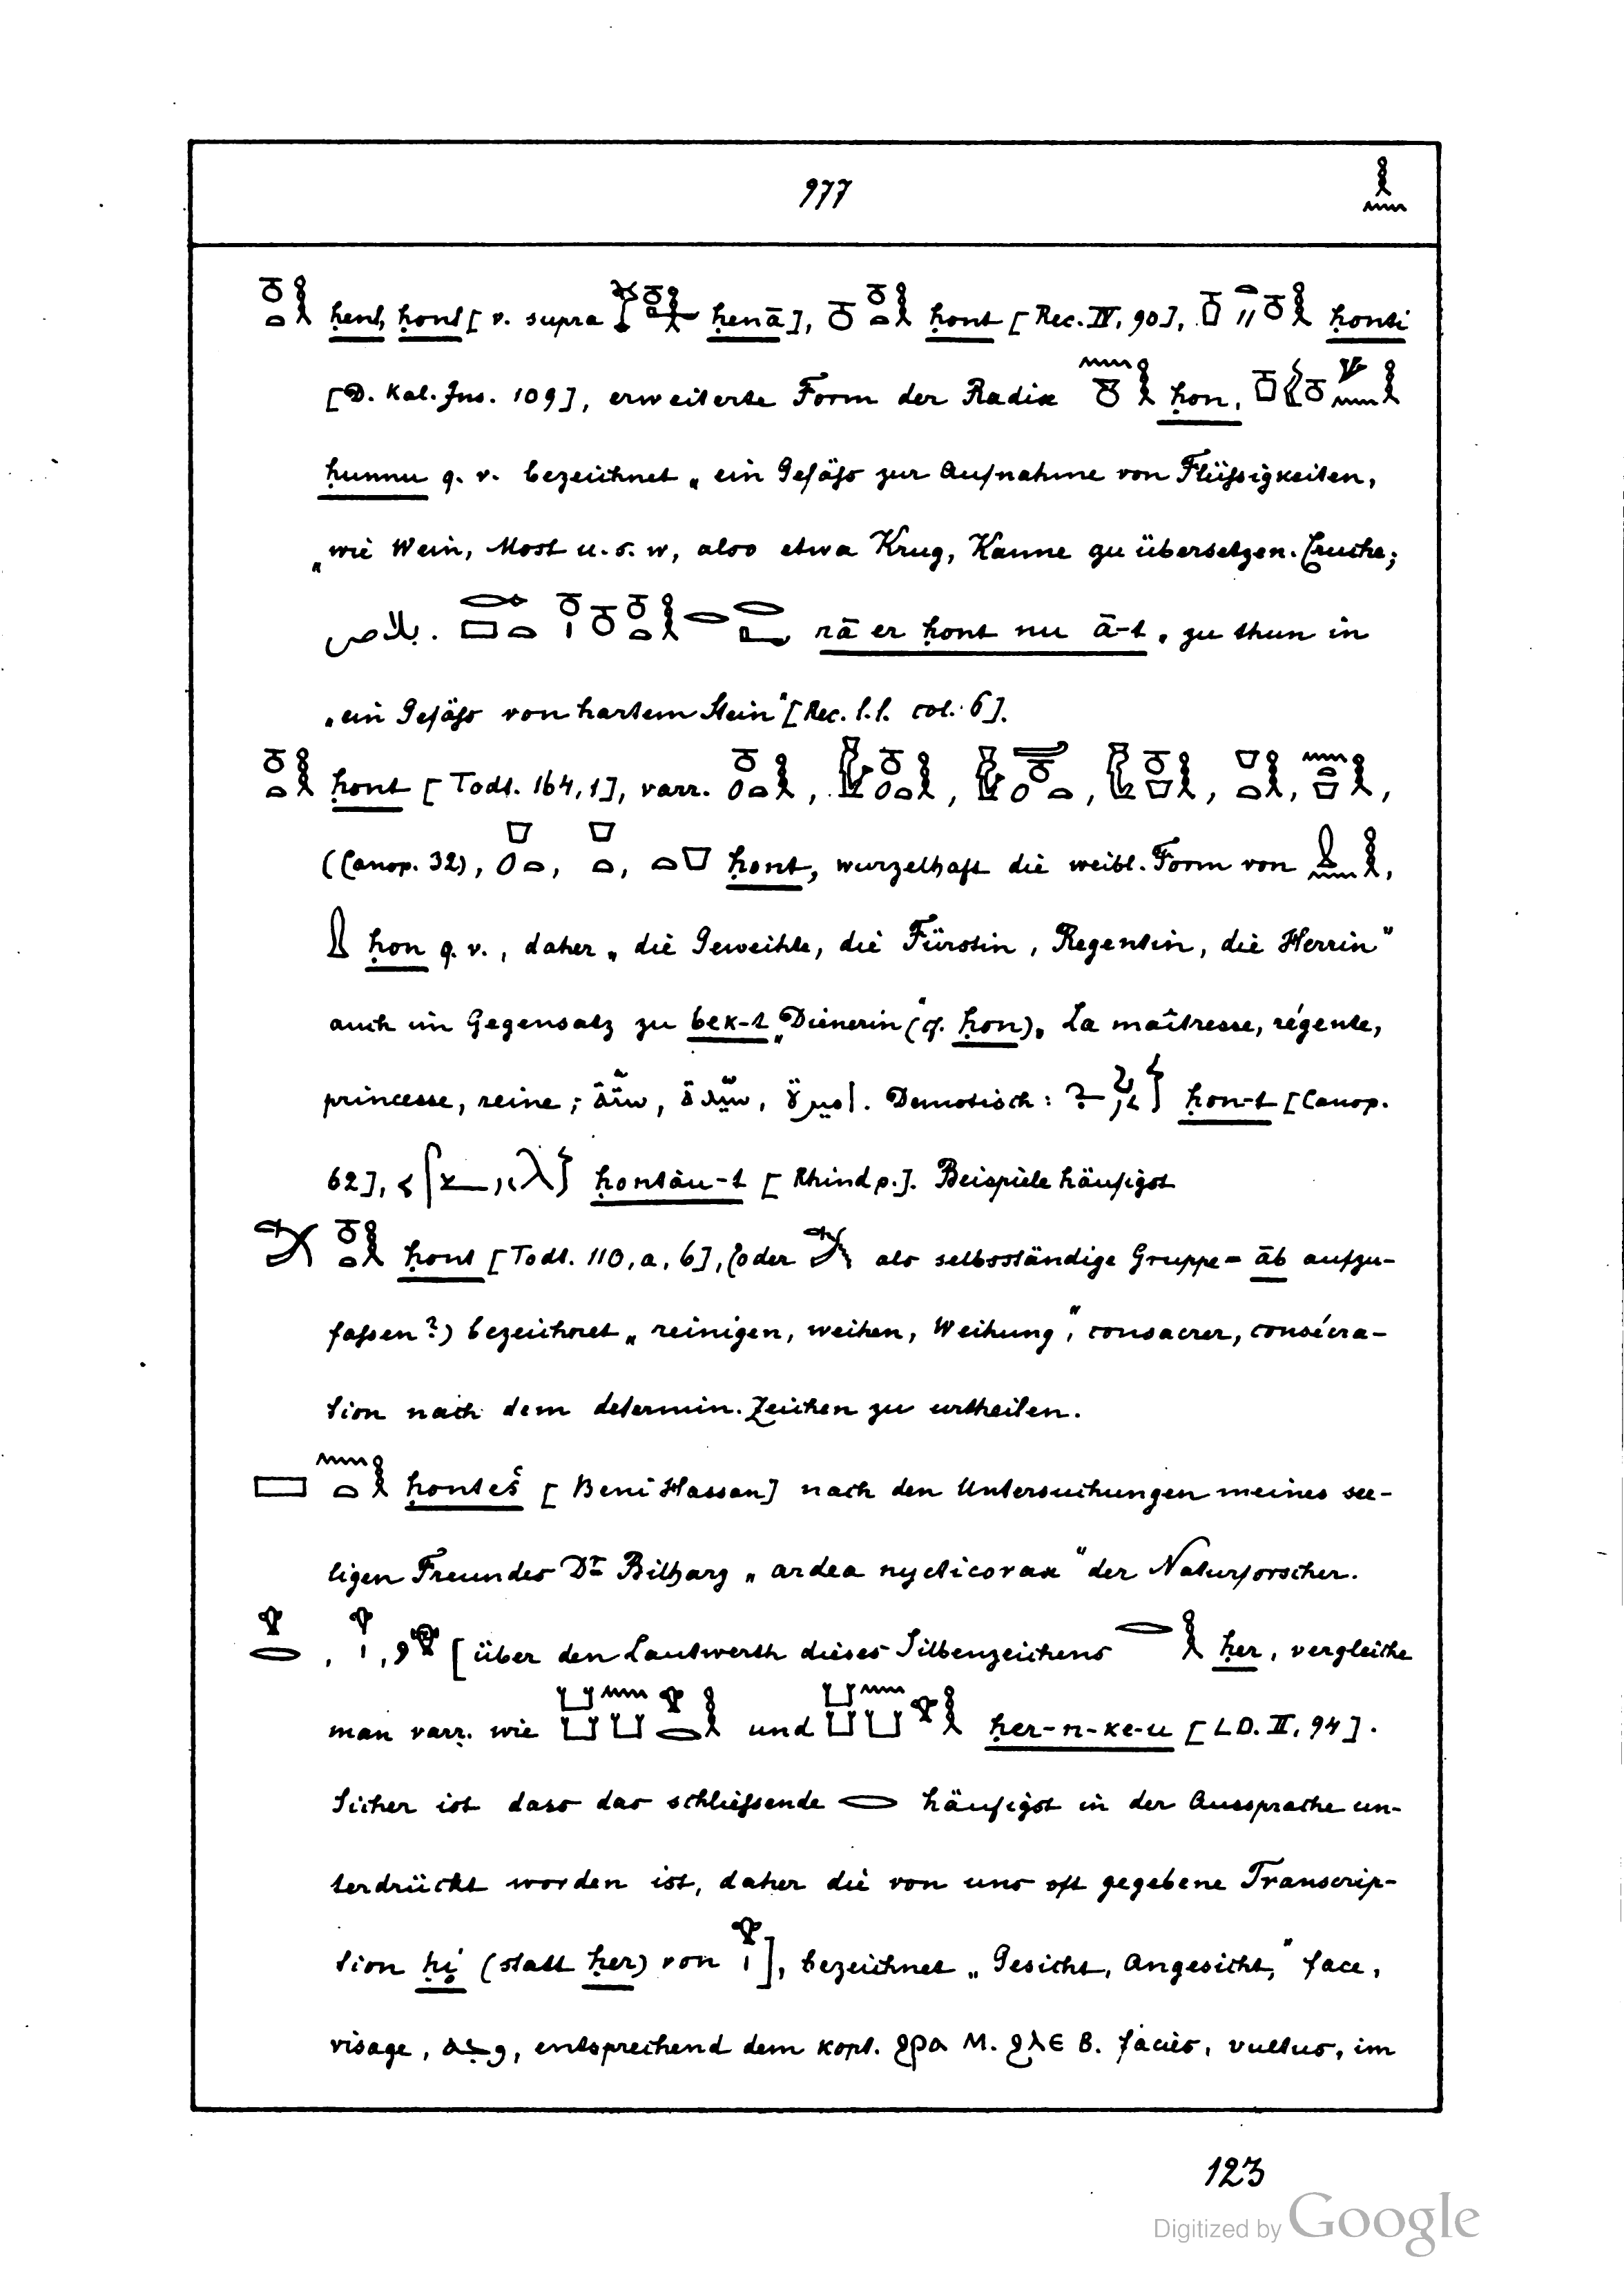 977
ḥent, ḥont [v. supra ḥenā], ḥont [Rec. IV, 90], ḥonti
[D. Kal. Ins. 109], erweiterte Form der Radix ḥon,
ḥunnu q. v. bezeichnet „ein Gefäſs zur Aufnahme von Flüſsigkeiten,
„wie Wein, Most u. s. w, also etwa Krug, Kanne zu übersetzen. Cruche;
بلاص. rā er ḥont nu ā-t „zu thun in
„ein Gefäſs von hartem Stein" [Rec. l. l. col. 6].
ḥont [Todt. 164,1], varr.
(Canop. 32), ḥont, wurzelhaft die weibl. Form von
ḥon q. v., daher „die Geweihte, die Fürstin, Regentin, die Herrin"
auch im Gegensatz zu bek-t „Dienerin" (cf. ḥon). La maîtresse, régente,
princesse, reine; ستّة, سيّدة, اميرة. Demotisch: ḥon-t [Canop.
62], ḥontàu-t [Rhind p.]. Beispiele häufigst
ḥont [Todt. 110, a, 6], (oder als selbsständige Gruppe = āb aufzu-
faſsen?) bezeichnet „reinigen, weihen, Weihung", consacrer, consécra-
tion nach dem determin. Zeichen zu urtheilen.
ḥonteš [Beni Hassan] nach den Untersuchungen meines see-
ligen Freundes Dr Bilharz „ardea nycticorax" der Naturforscher.
[über den Lautwerth dieses Silbenzeichens ḥer, vergleiche
man varr. wie und ḥer-n-ke-u [LD. II, 94].
Sicher ist dass das schlieſsende häufigst in der Aussprache un-
terdrückt worden ist, daher die von uns oft gegebene Transcrip-
tion ḥi (statt ḥer) von ], bezeichnet „Gesicht, Angesicht," face,
visage, وجه, entsprechend dem kopt. ϩρα M. ϩλε B. facies, vultus, im
123
Digitized by Google